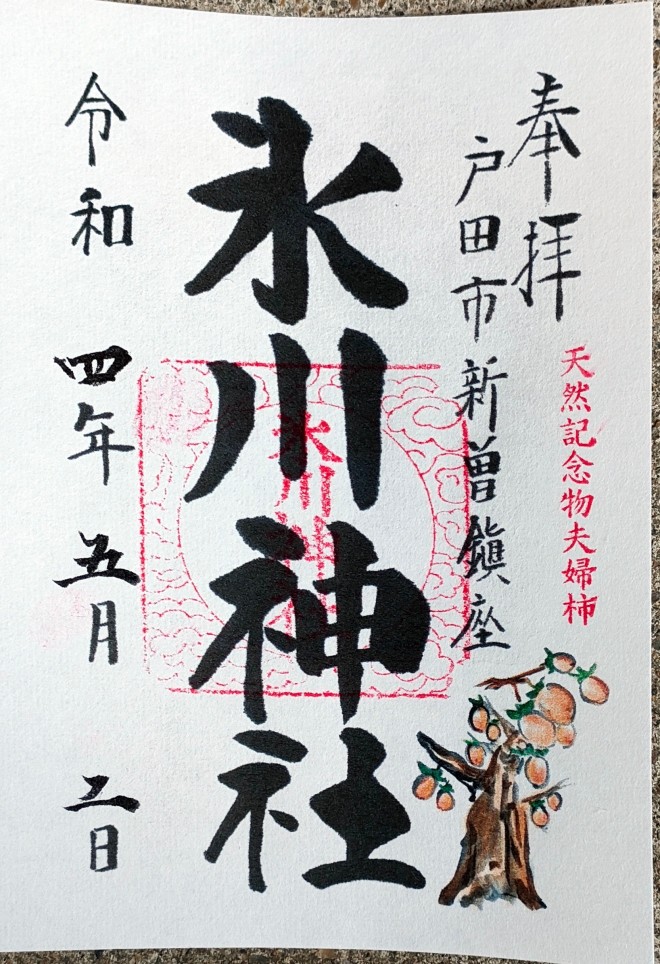 奉拝
天然記念物夫婦柿
戸田市新曽鎮座
氷川神社
氷川神社
令和四年五月二日